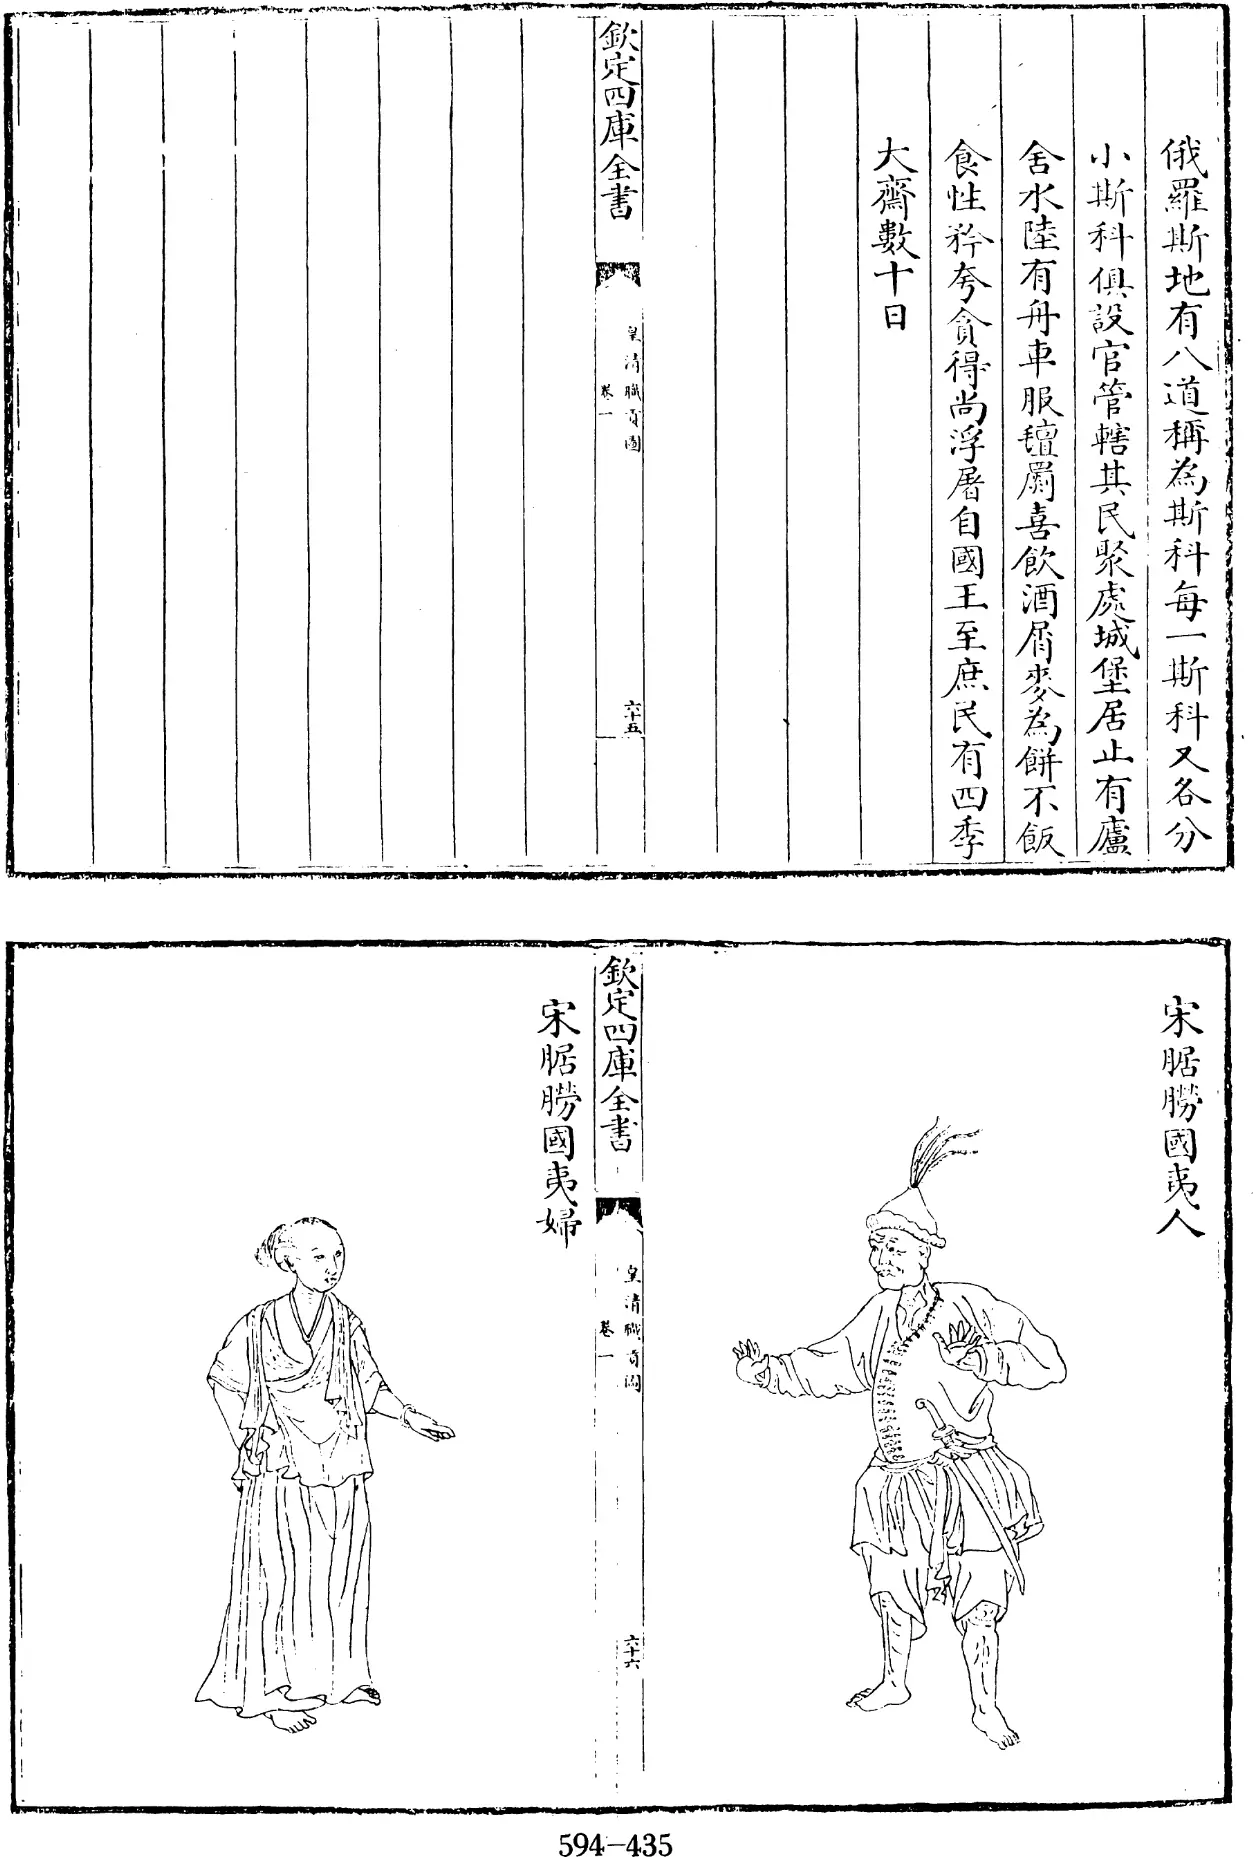 俄羅斯地有八道稱為斯科每一斯科又各分
小斯科俱設官管轄其民聚處城堡居止有廬
舍水陸有舟車服氊罽喜飲酒屑麥為餅不飯
食性矜夸貪得尚浮屠自國王至庶民有四季
大齋數十日
欽定四庫全書
皇清職貢圖
卷一
六十五
宋腒朥國夷人
欽定四庫全書
皇清職貢圖
卷一
六十六
宋腒朥國夷婦
594-435